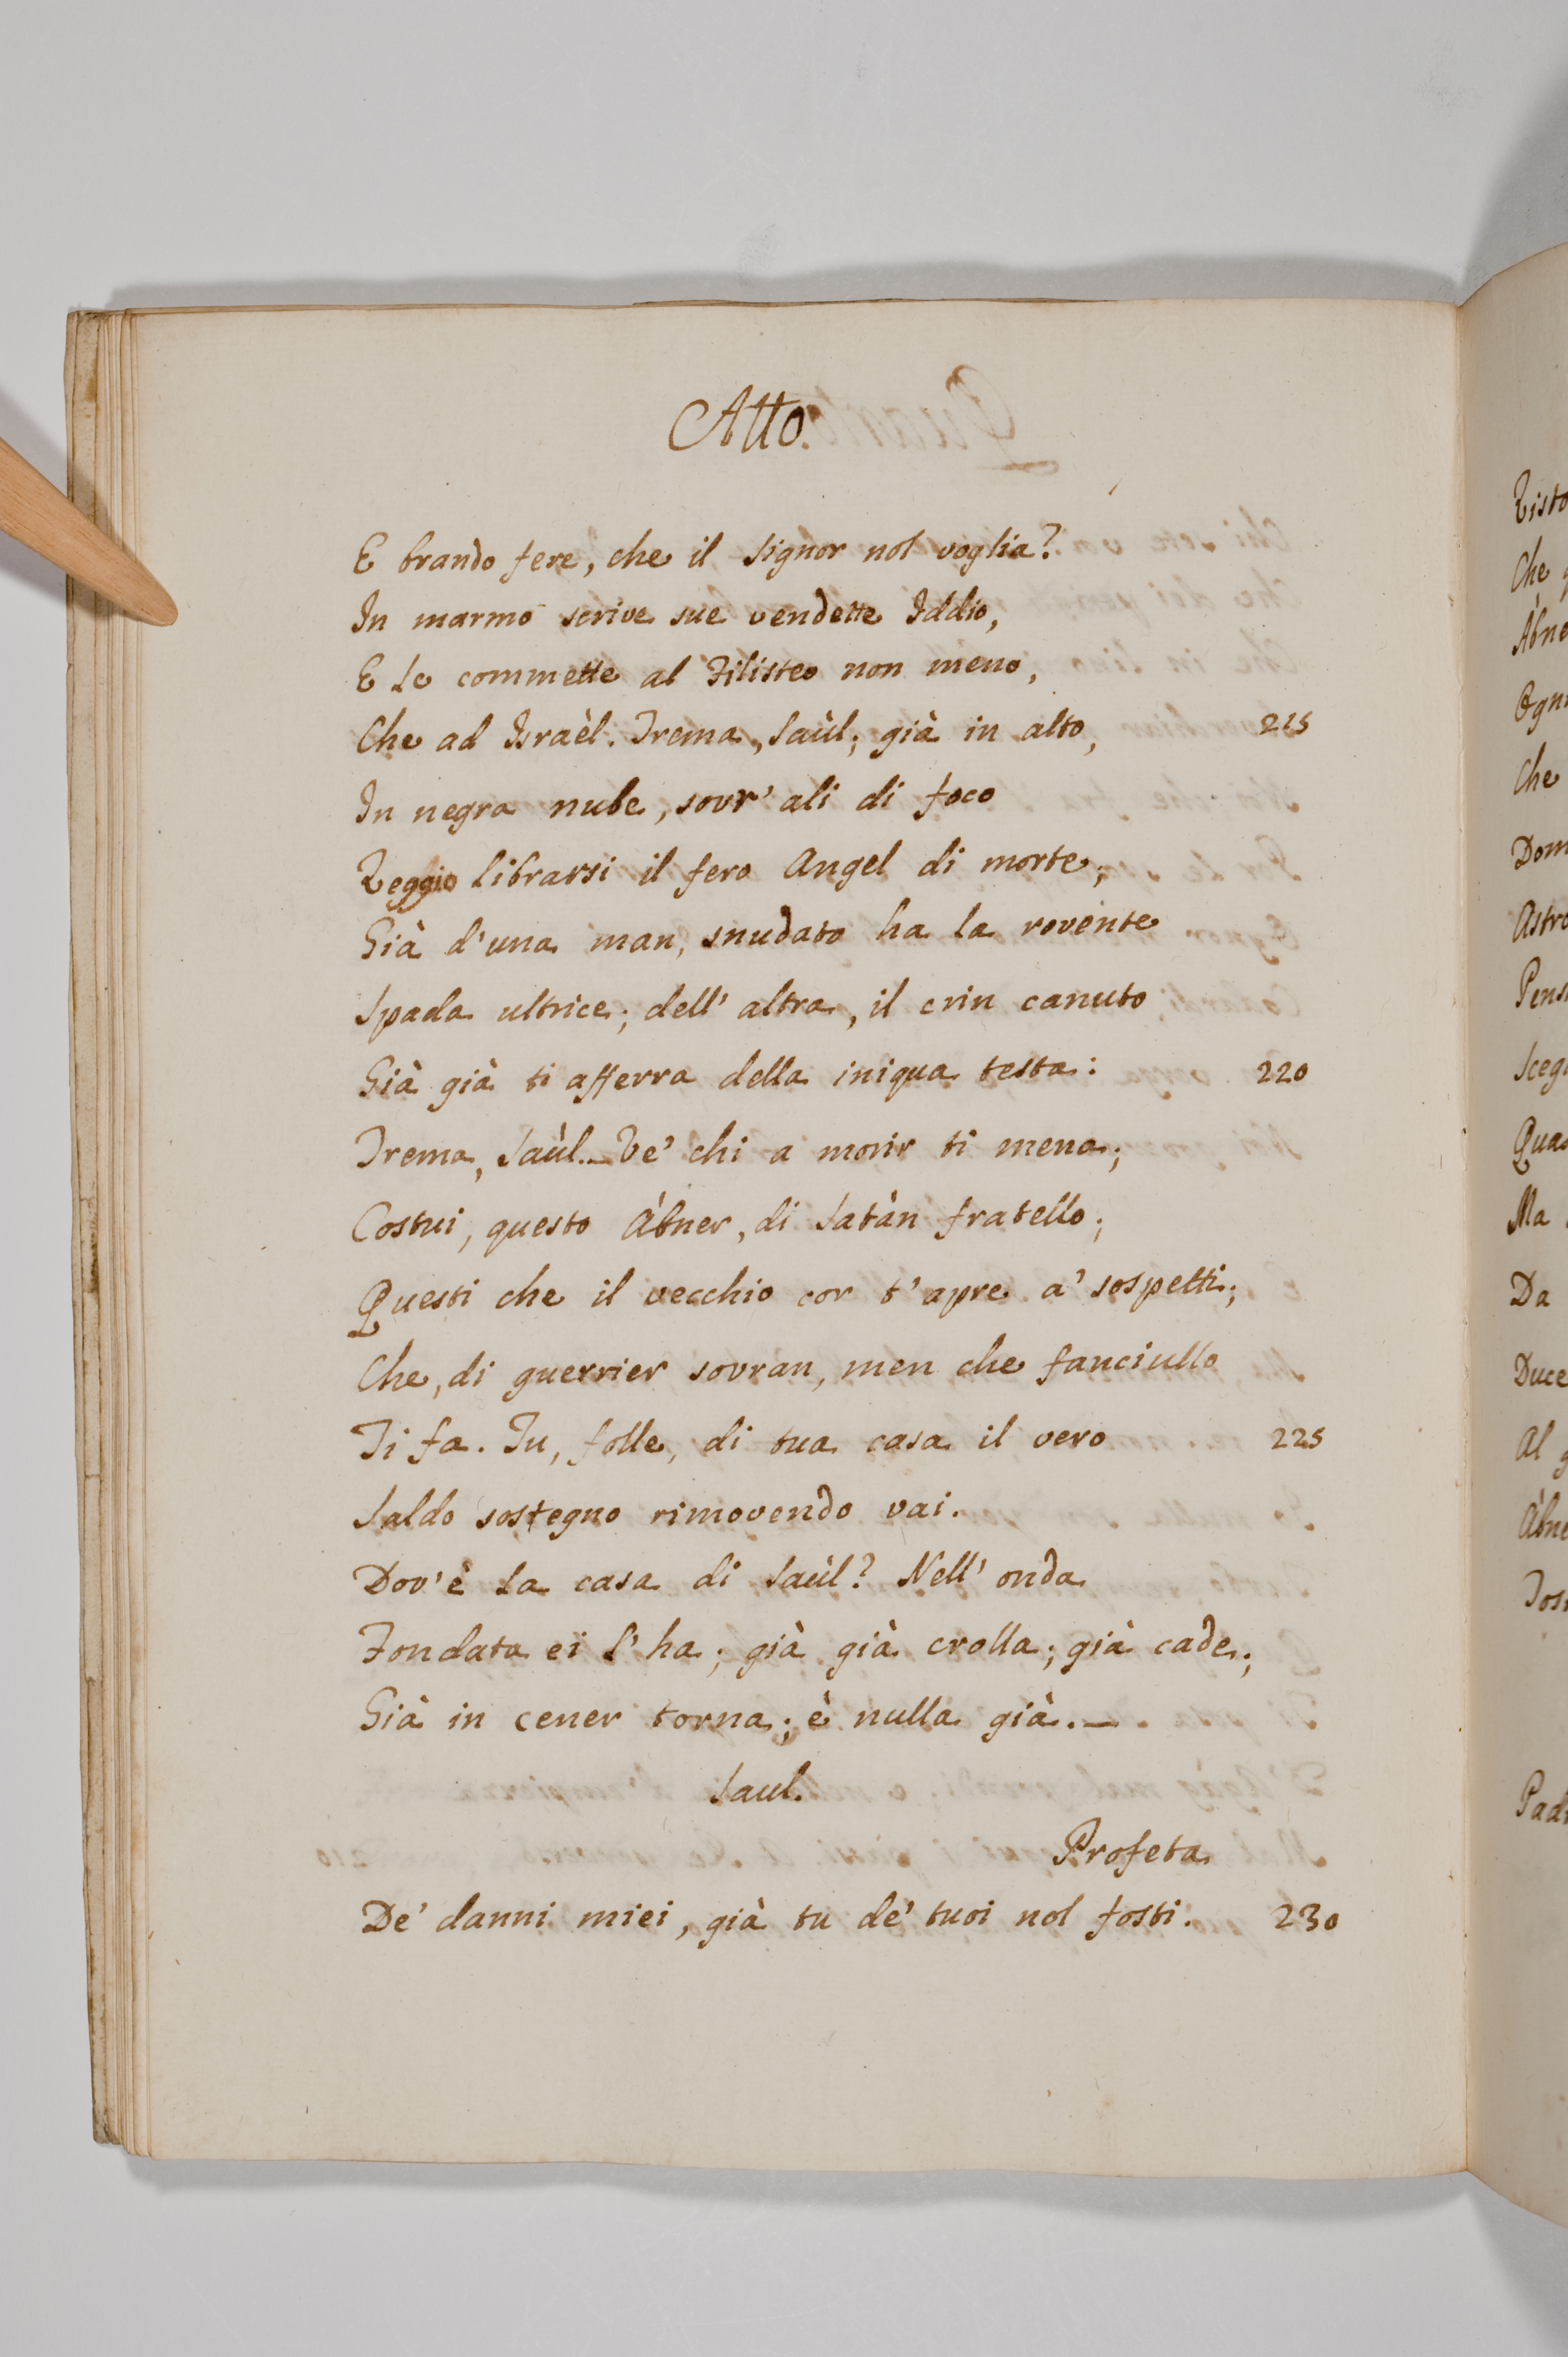 Atto.
E brando fere, che il Signor nol voglia?
In marmo scrive sue vendette Iddio,
E le commette al Filisteo non meno,
Che ad Israèl. Trema, Saùl; già in alto, 215
In negra nube, sovr' ali di foco
Veggio librarsi il fero Angel di morte;
Già d'una man, snudato ha la rovente
Spada ultrice; dell' altra, il crin canuto
Già già ti afferra della iniqua testa: 220
Trema, Saùl._ Ve' chi a morir ti mena;
Costui, questo Àbner, di Satàn fratello;
Questi che il vecchio cor t'apre a' sospetti;
Che, di guerrier sovran, men che fanciullo
Ti fa. Tu, folle, di tua casa il vero 225
Saldo sostegno rimovendo vai.
Dov'è la casa di Saùl? Nell' onda
Fondata ei l'ha; già già crolla; già cade;
Già in cener torna; è nulla già._
Saul.
Profeta
De' danni miei, già tu de' tuoi nol fosti. 230
Che
Ogni
Che
Ma
Da
Duce
Al